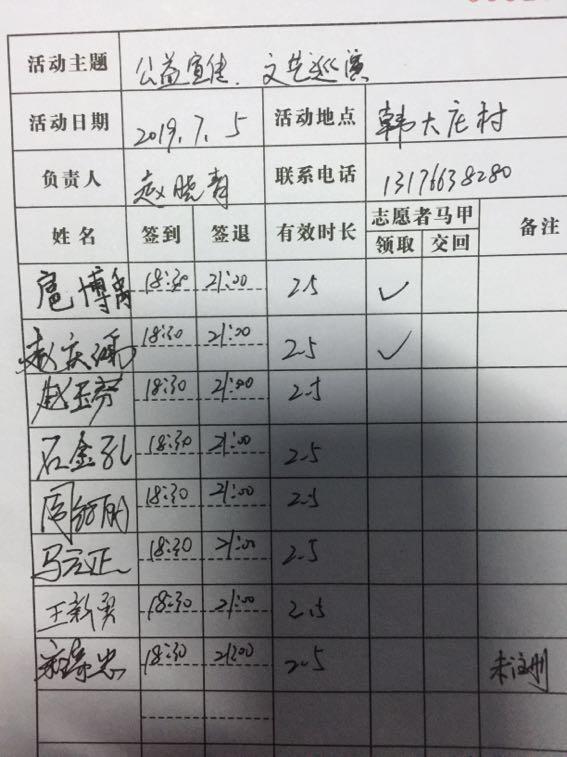 活动主题 公益宣传、文艺巡演
活动日期 2019.7.5 活动地点 韩大庄村
负责人 赵晓青 联系电话 13176638280
姓名 签到 签退 有效时长 志愿者马甲 备注
领取 交回
扈博 18:30 21:00 2.5 ✓
赵庆 18:30 21:00 2.5 ✓
赵玉芬 18:30 21:00 2.5
石金孔 18:30 21:00 2.5
周 18:30 21:00 2.5
马立正 18:30 21:00 2.5
王新勇 18:30 21:00 2.5
18:30 21:00 2.5 未注册